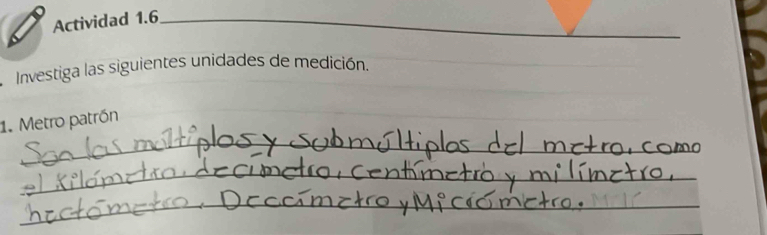 Actividad 1.6
Investiga las siguientes unidades de medición.
1. Metro patrón
Son las múltiplos y submúltiplos del metro, como
el Kilómetro, decímetro, centímetro y milímetro,
hectómetro, Deccímetro y Miciómetro.